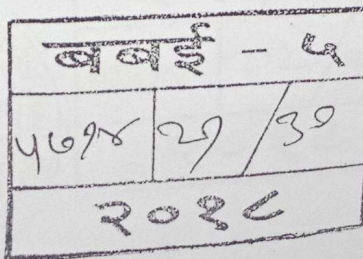 बबई - ५
५७१४ २१/३०
२०१८